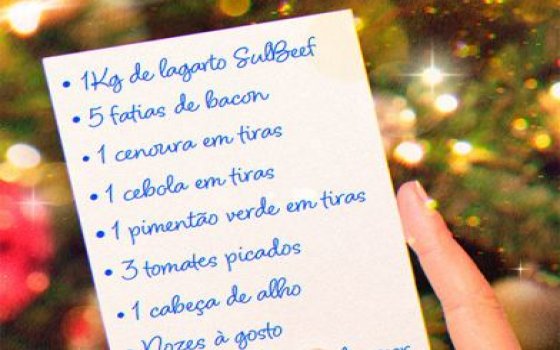 • 1Kg de lagarto SulBeef
• 5 fatias de bacon
• 1 cenoura em tiras
• 1 cebola em tiras
• 1 pimentão verde em tiras
• 3 tomates picados
• 1 cabeça de alho
• Nozes à gosto